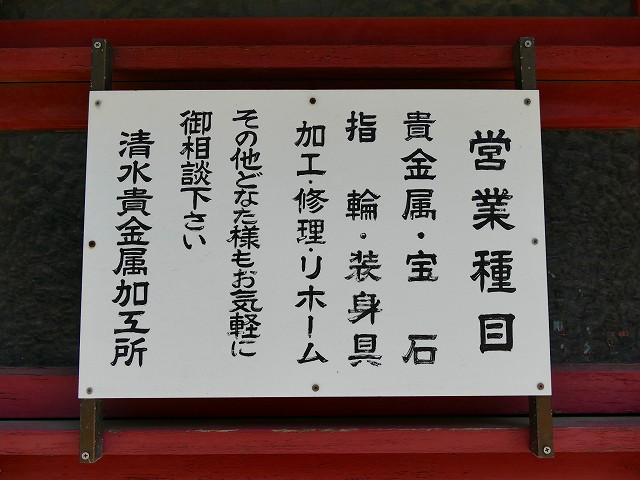 営業種目
貴金属・宝石
指輪・装身具
加工・修理・リホーム
その他どなた様もお気軽に
御相談下さい
清水貴金属加工所